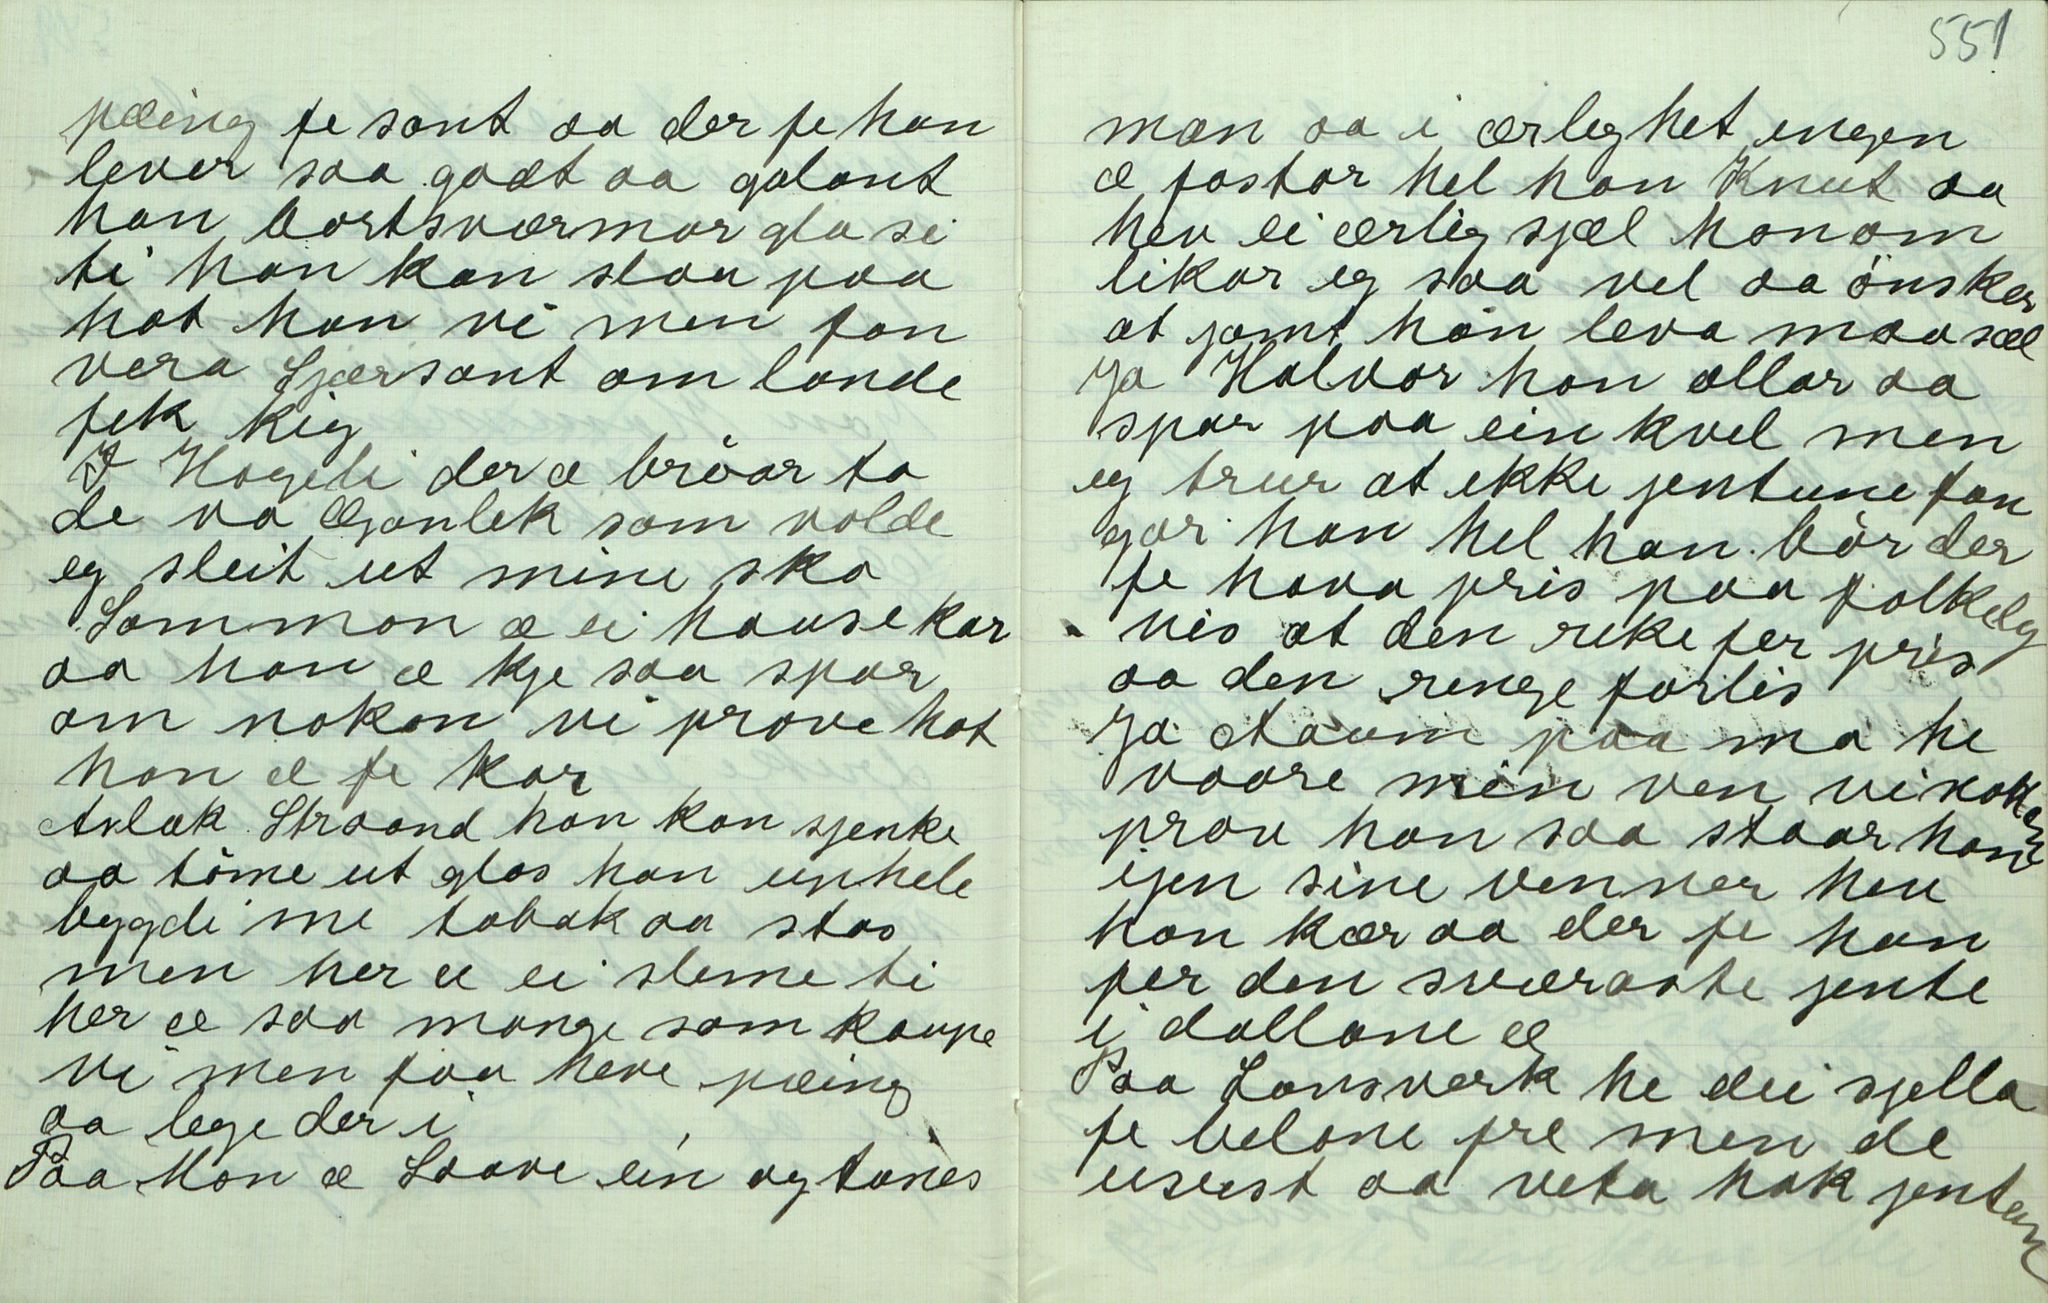 pæing fe sant aa der fe han
lever saa godt aa galant
han bortsværmar gla si
ti han kan slaa paa
hot han vi men fan
vera Sjærsant om lande
fek kig
I Hogeli der æ bröar to
de va Æganlek som volde
eg sleit ut mine sko
Sammon æ ei hause kar
aa han æ kje saa spar
om nokon vi prove hot
han æ fe kar
Avlak Straand han kan sjenke
aa töme ut glas han unhele
bygdi me tobak aa stas
men her æ ei sleme ti
her æ saa mange som kaupe
vi men faa heve pæing
aa lege der i
Paa Mon æ Laave ein agtanes
551
man aa i ærleghet engen
æ fastar hel han Knut aa
hev ei ærlig sjæl honom
likar eg saa vel aa önsker
at jamt han leva maa sæl
Ja Halvor han ællar aa
spar paa ein kvel men
eg trur at ekke jentune fan
gar han hel han bör der
fe hava pris paa folkeleg
vis at den reke fer pris
aa den renge forlis
Ja Aaum paa ma he
vaare min ven vi
prov han saa staar han
igen sine venner heu
han kær aa der fe han
fer den sværaste jente
i dallane æ
Paa Lansverk he dei sjella
fe belane fre men de
usust aa veta hok